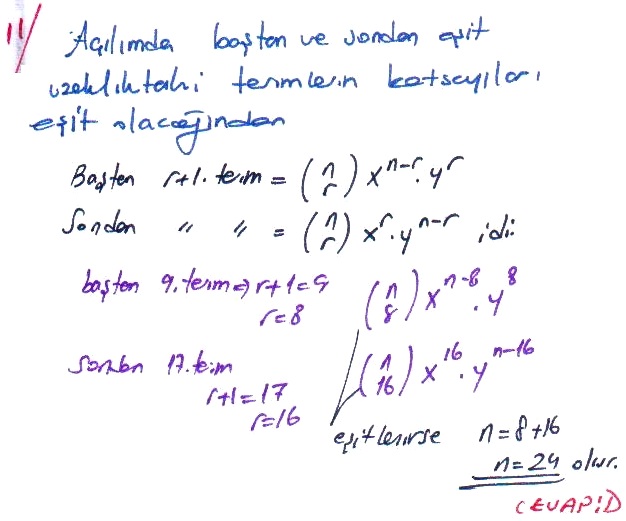 11/ Açılımda baştan ve sondan eşit
uzaklıktaki terimlerin katsayıları
eşit olacağından
Baştan r+1. terim = (n r) x^n-r . y^r
Sondan " " = (n r) x^r . y^n-r idi:
baştan 9. terim ⇒ r+1=9
r=8
(n 8) x^n-8 . y^8
sondan 17. terim
r+1=17
r=16
(n 16) x^16 . y^n-16
eşitlenirse n=8+16
n=24 olur.
CEVAP: D